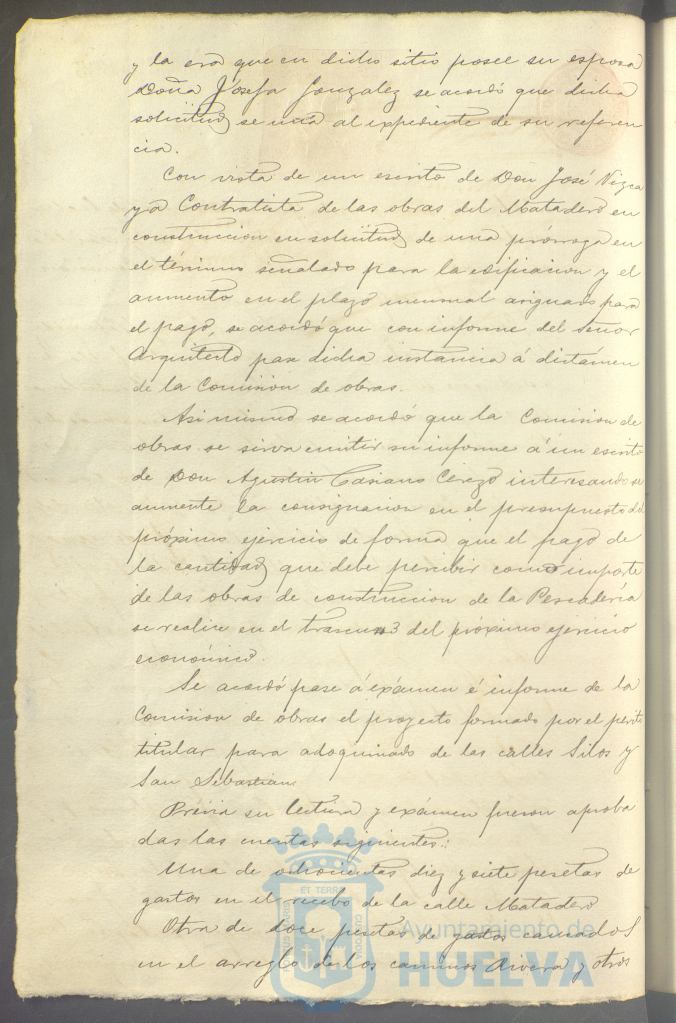 y la era que en dicho sitio posee su esposa
Doña Josefa Gonzalez se acordó que dicha
solicitud se una al expediente de su referen
cia.
Con vista de un escrito de Don José Vizca
ya Contratista de las obras del Matadero en
construccion en solicitud de una prórroga en
el término señalado para la edificacion y el
aumento en el plazo mensual asignado para
el pago, se acordó que con informe del Señor
Arquitecto pase dicha instancia á dictámen
de la Comision de obras.
Asi mismo se acordó que la Comision de
obras se sirva emitir su informe á un escrito
de Don Agustin Casiano Cerezo interesando se
aumente la consignacion en el presupuesto del
próximo ejercicio de forma que el pago de
la cantidad que debe percibir como importe
de las obras de construccion de la Pescadería
se realice en el del próximo ejercicio
económico.
Se acordó pase á exámen é informe de la
Comision de obras el proyecto formado por el perito
titular para adoquinado de las calles Silos y
San Sebastian.
Prévia su lectura y exámen fueron aproba
das las cuentas siguientes:
Una de ochocientas diez y siete pesetas de
gastos en el recebo de la calle Matadero
Otra de doce pesetas de gastos causados
en el arreglo de los caminos Rivera y otros
ET TERRÆ
Ayuntamiento de
HUELVA